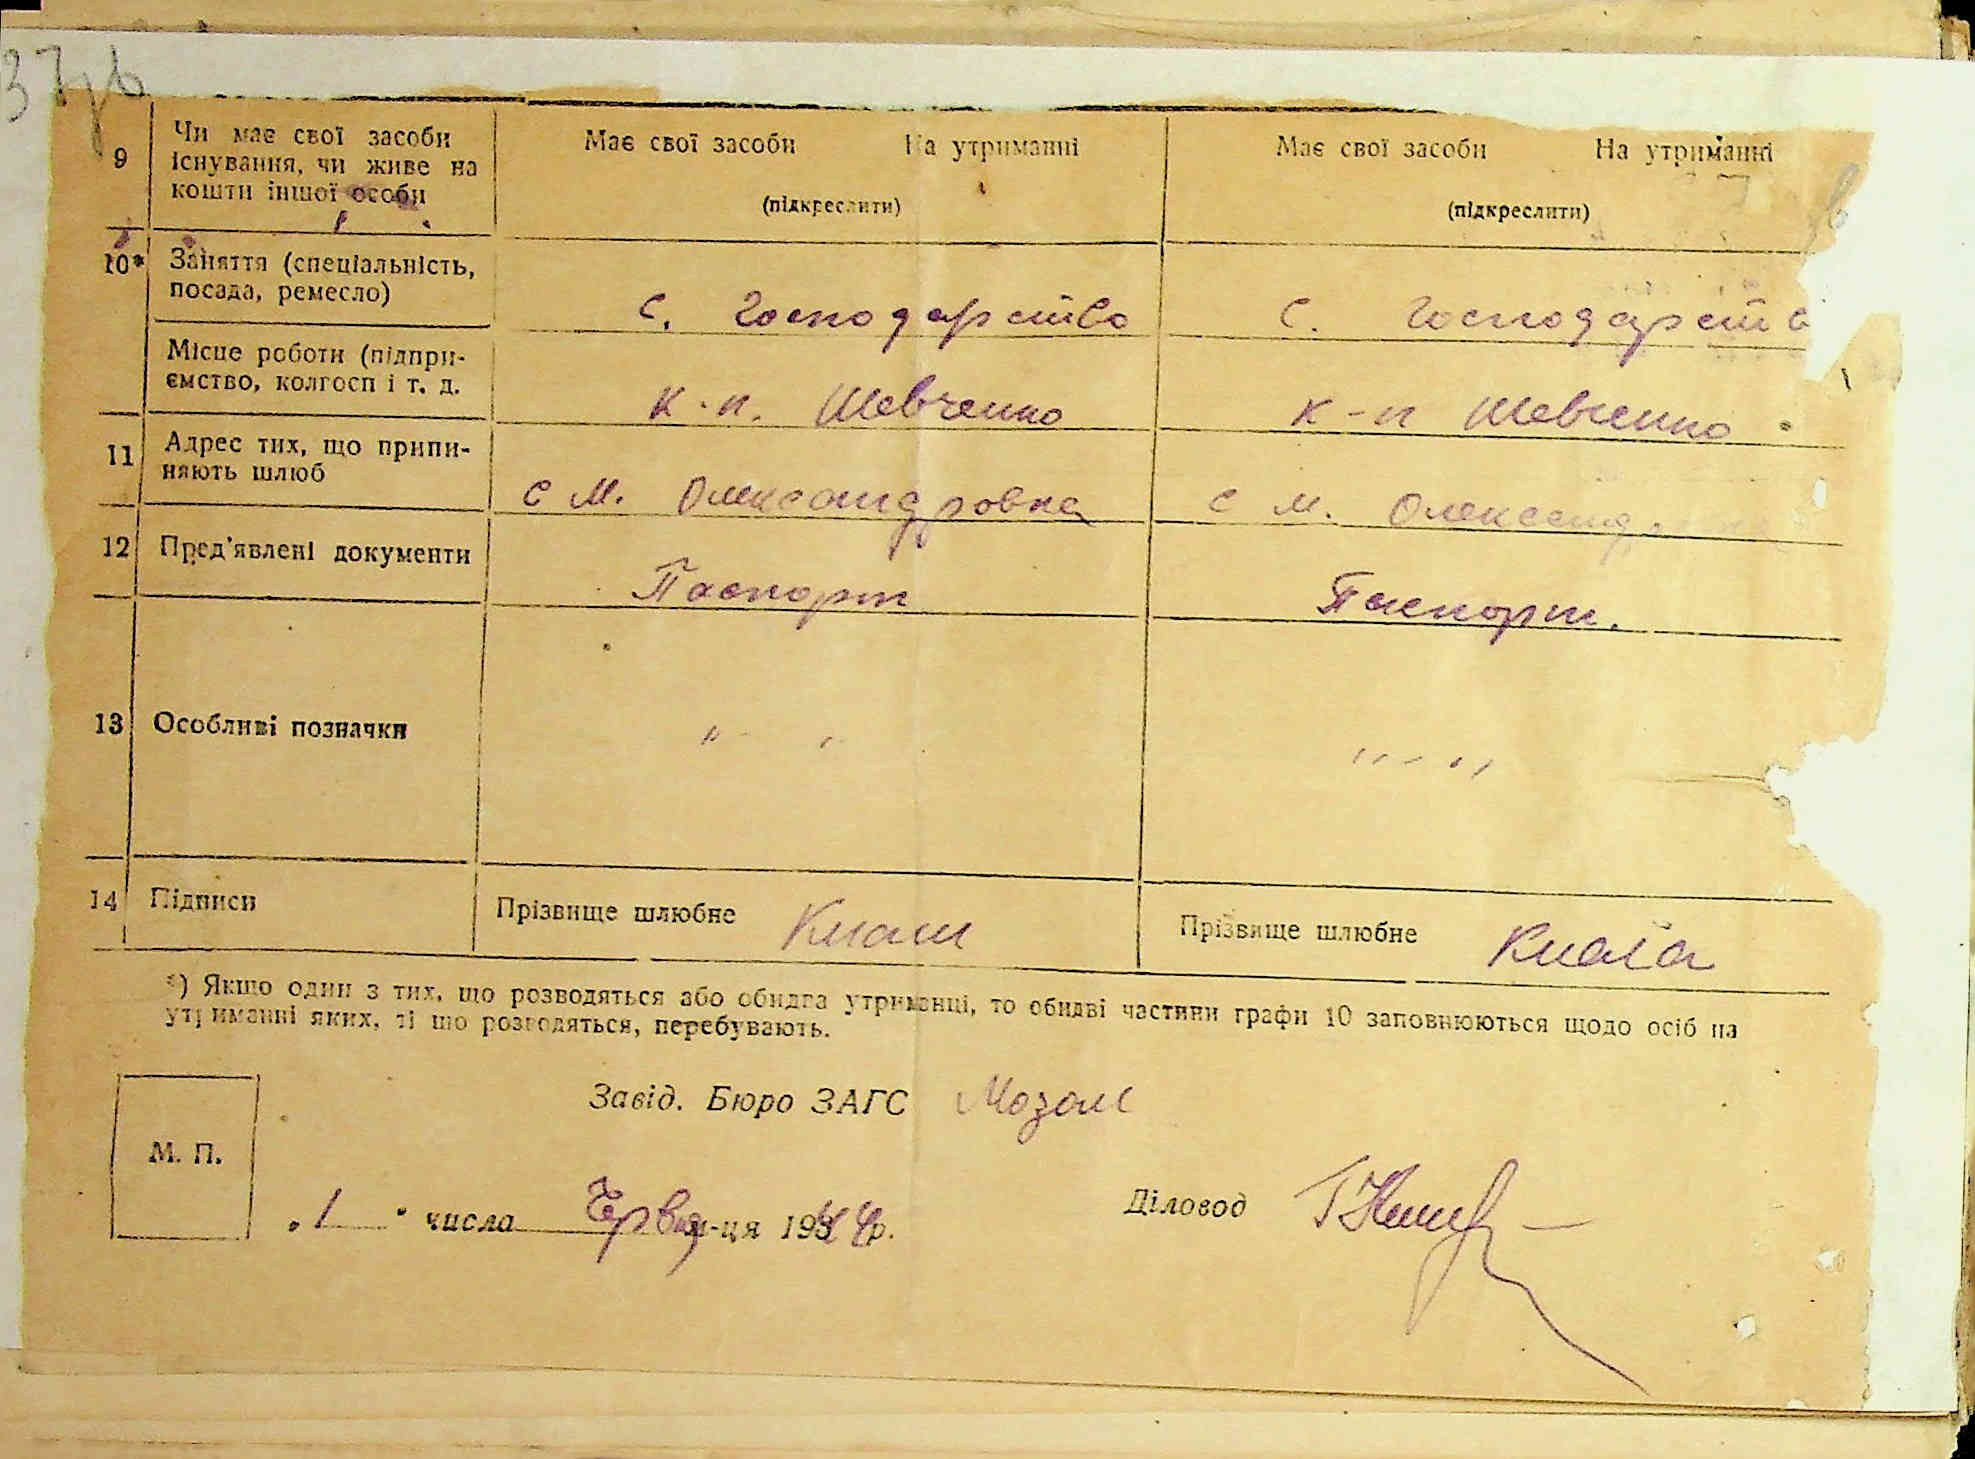 37
9 Чи має свої засоби існування, чи живе на кошти іншої особи
Має свої засоби На утриманні
(підкреслити)
Має свої засоби На утриманні
(підкреслити)
10* Заняття (спеціальність, посада, ремесло)
с. господарство
с. господарств
Місце роботи (підпри-
ємство, колгосп і т. д.
к-п. Шевченко
к-п Шевченко
11 Адрес тих, що припи-
няють шлюб
с М. Олександровка
с М. Олександ
12 Пред'явлені документи
Паспорт
Паспорт.
13 Особливі позначки
14 Підписи
Прізвище шлюбне
Прізвище шлюбне
*) Якщо один з тих, що розводяться або обидва утриманці, то обидві частини графи 10 заповнюються щодо осіб на
утриманні яких, ті що розводяться, перебувають.
Завід. Бюро ЗАГС
М. П.
„1" числа Червня м-ця 1944р.
Діловод